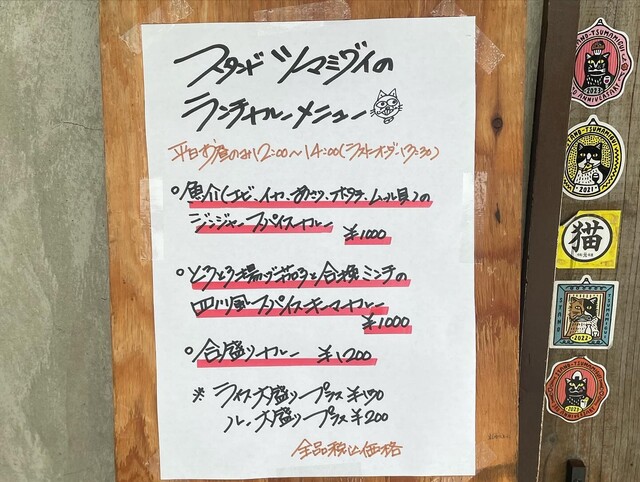 スタンドツマミグイの
ランチカレーメニュー
平日お昼のみ12:00〜14:00(ラストオーダー13:30)
○魚介(エビ、イカ、あさり、ホタテ、ムール貝)の
ジンジャースパイスカレー
¥1000
○とろとろ揚げ茄子と合挽ミンチの
四川風スパイスキーマカレー
¥1000
○合盛りカレー ¥1200
※ ライス大盛りプラス¥150
ルー大盛りプラス¥200
全品税込価格
STAND-TSUMAMIGUI
ANNIVERSARY
2023
STAND-TSUMAMIGUI
2021
猫
2022
2023